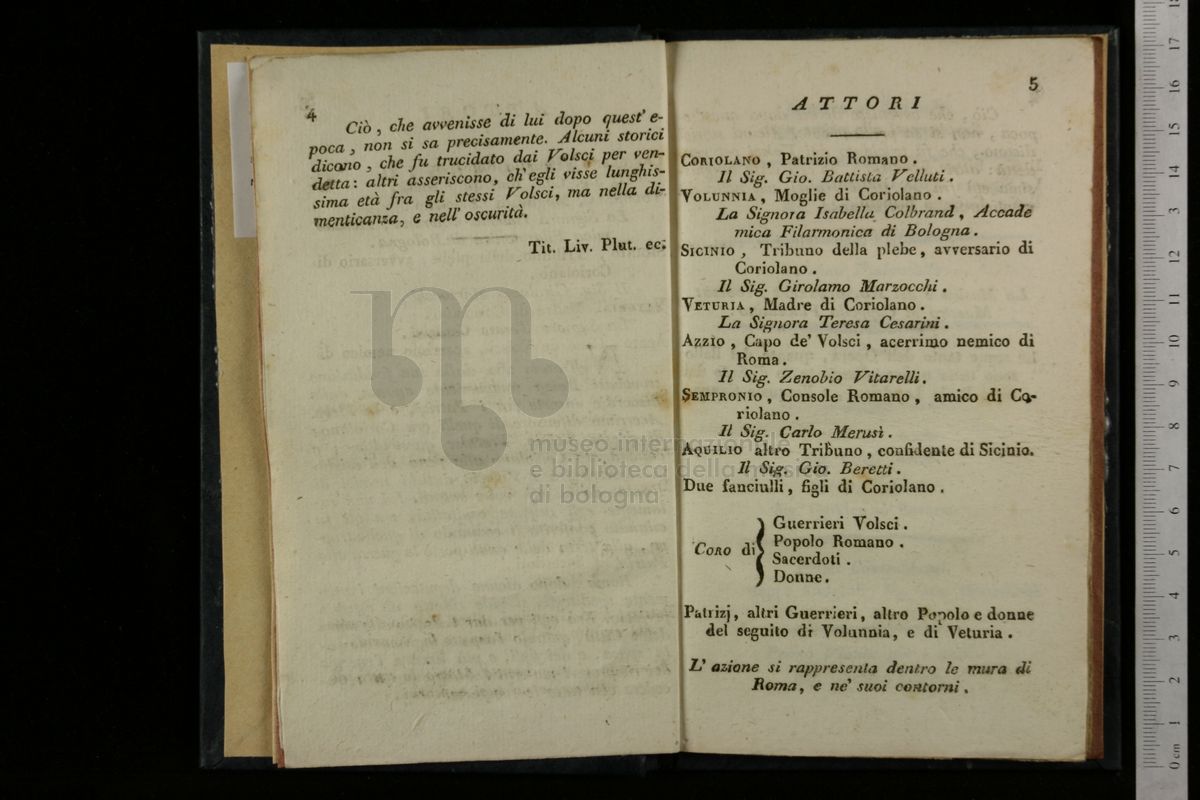 4
Ciò, che avvenisse di lui dopo quest' e-
poca, non si sa precisamente. Alcuni storici
dicono, che fu trucidato dai Volsci per ven-
detta: altri asseriscono, ch'egli visse lunghis-
sima età fra gli stessi Volsci, ma nella di-
menticanza, e nell' oscurità.
Tit. Liv. Plut. ec.
5
ATTORI
CORIOLANO, Patrizio Romano.
Il Sig. Gio. Battista Velluti.
VOLUNNIA, Moglie di Coriolano.
La Signora Isabella Colbrand, Accade
mica Filarmonica di Bologna.
SICINIO, Tribuno della plebe, avversario di
Coriolano.
Il Sig. Girolamo Marzocchi.
VETURIA, Madre di Coriolano.
La Signora Teresa Cesarini.
AZZIO, Capo de' Volsci, acerrimo nemico di
Roma.
Il Sig. Zenobio Vitarelli.
SEMPRONIO, Console Romano, amico di Co-
riolano.
Il Sig. Carlo Merusi.
AQUILIO altro Tribuno, confidente di Sicinio.
Il Sig. Gio. Beretti.
Due fanciulli, figli di Coriolano.
CORO di
Guerrieri Volsci.
Popolo Romano.
Sacerdoti.
Donne.
Patrizj, altri Guerrieri, altro Popolo e donne
del seguito di Volunnia, e di Veturia.
L' azione si rappresenta dentro le mura di
Roma, e ne' suoi contorni.
museo internazionale
e biblioteca della musica
di bologna
0 cm 1 2 3 4 5 6 7 8 9 10 11 12 13 14 15 16 17